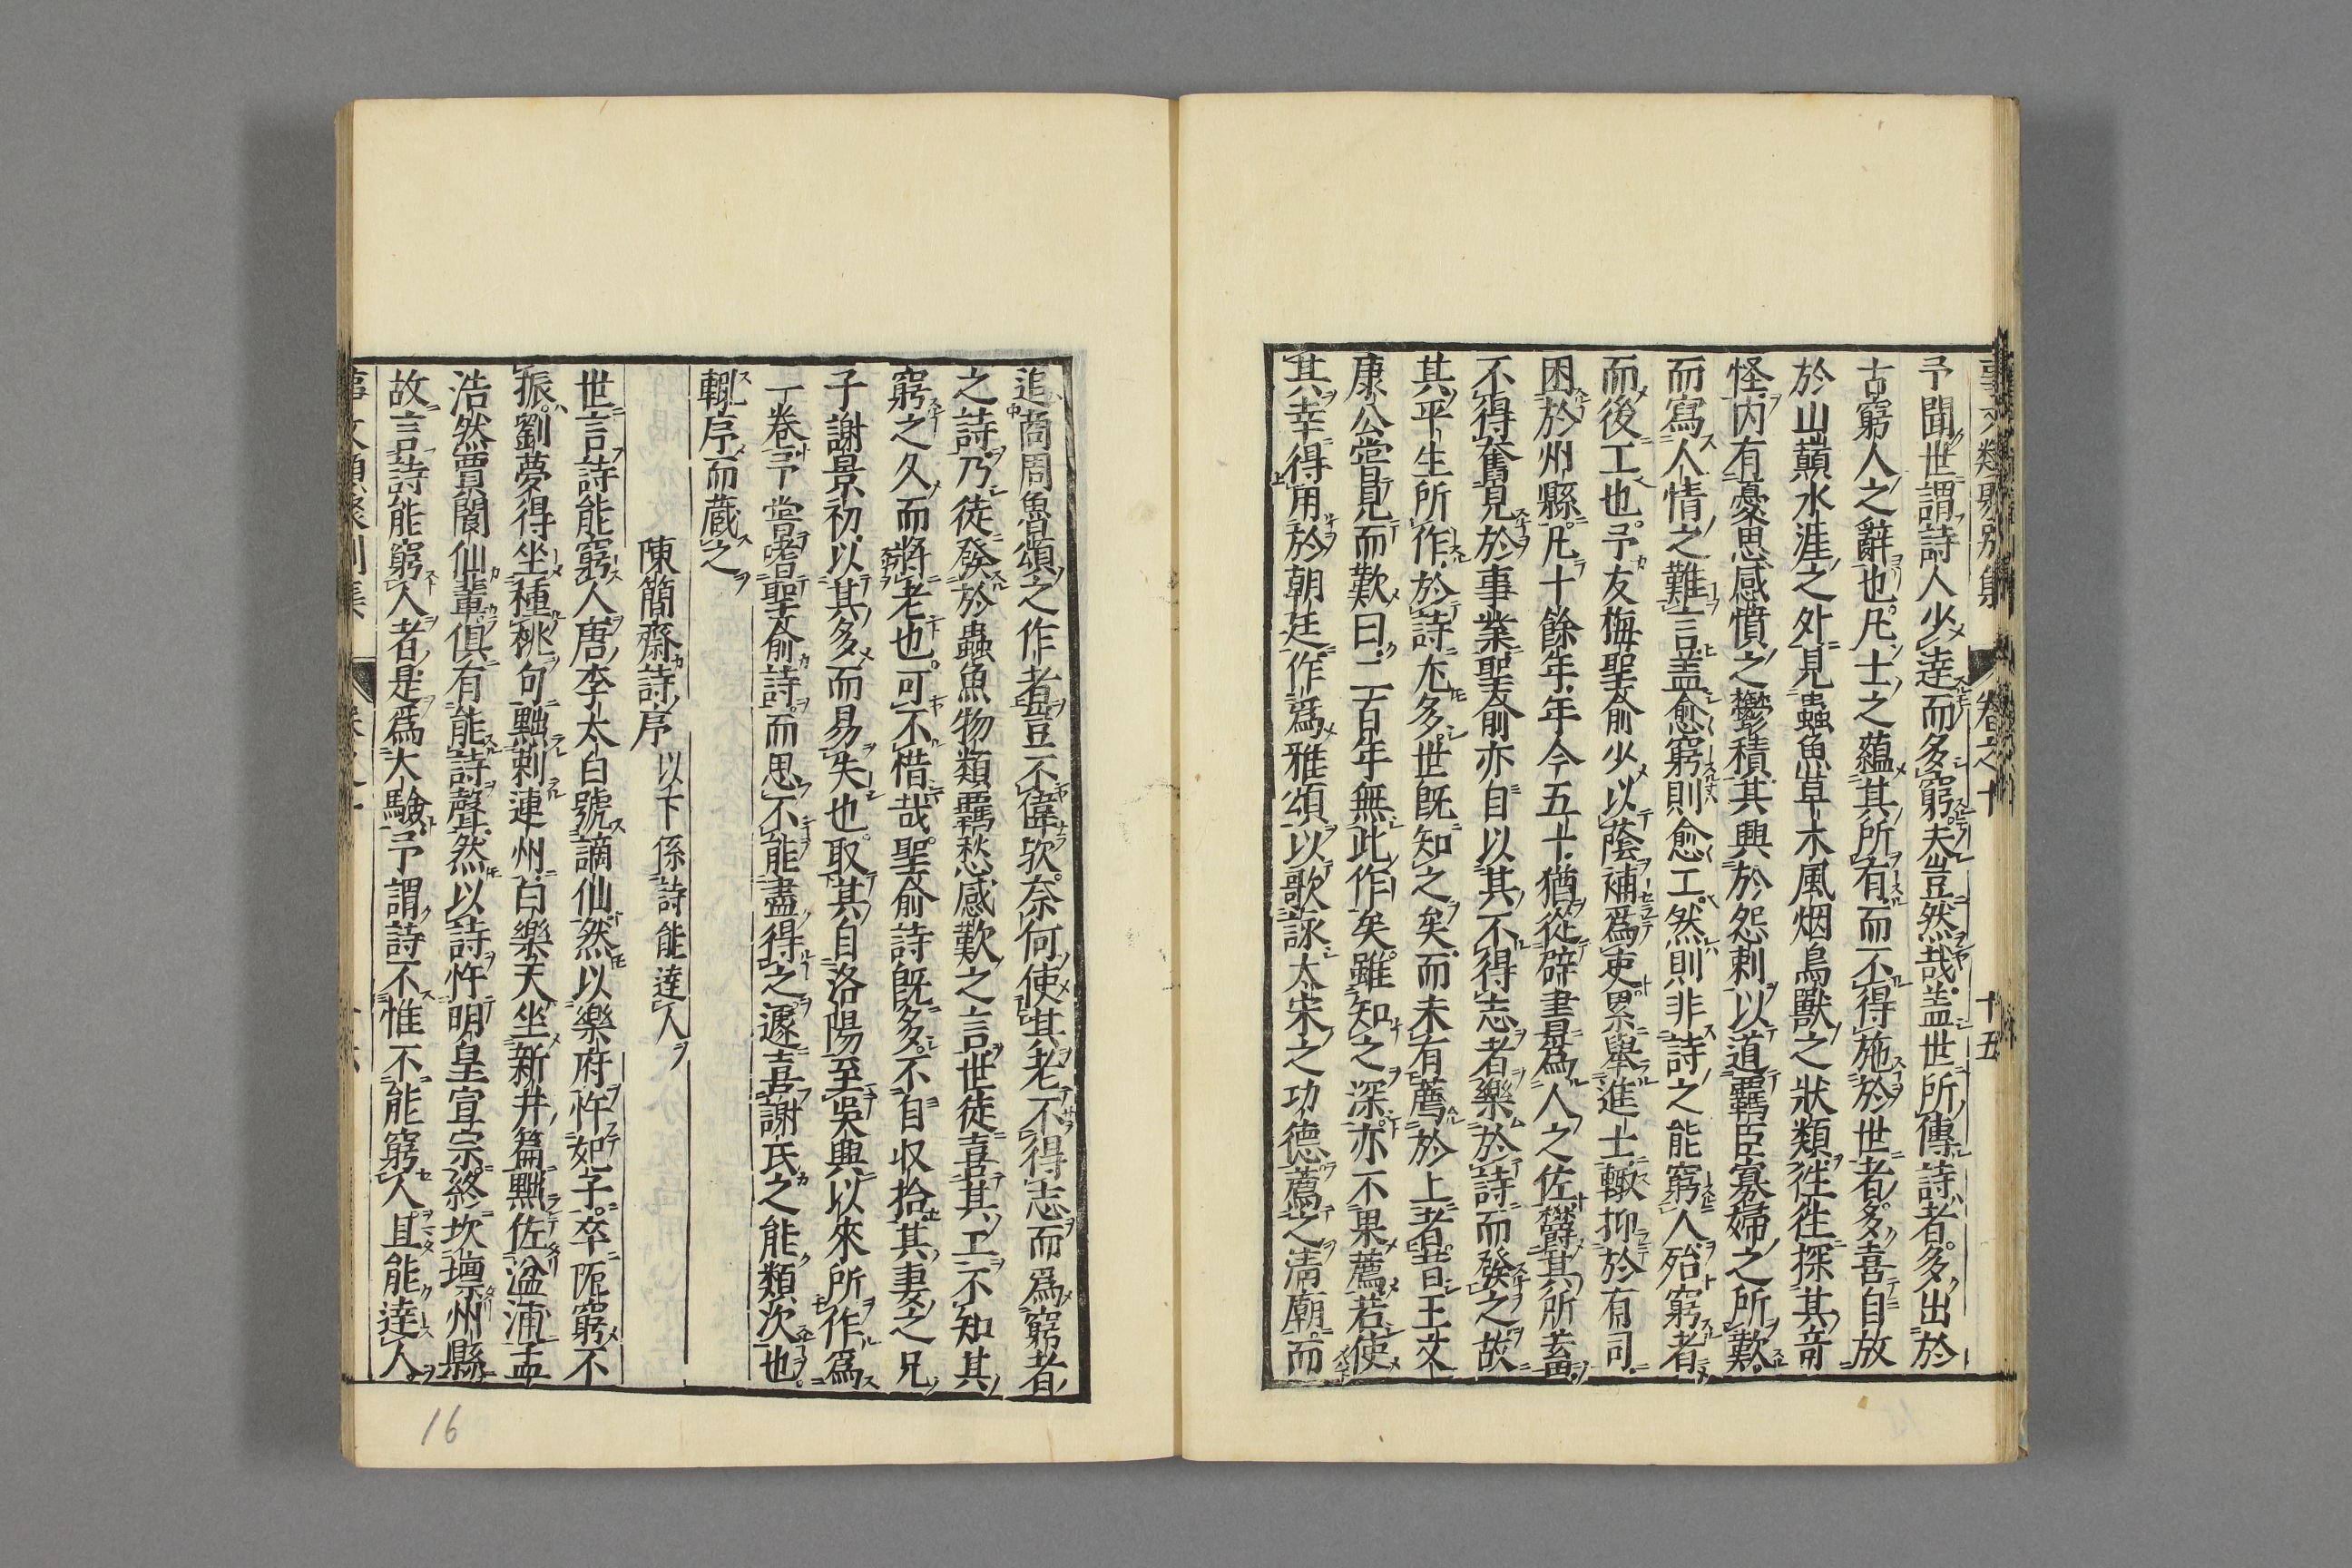 予聞世謂詩人少達而多窮夫豈然哉盖世所傳詩者多出於
古窮人之辭也凡士之蘊其所有而不得施於世者多喜自放
於山巔水涯之外見蟲魚草木風烟鳥獸之狀類往往探其竒
怪内有憂思感憤之鬱積其興於怨刺以道羈臣寡婦之所歎
而寫人情之難言盖愈窮則愈工然則非詩之能窮人殆窮者
而後工也予友梅聖俞少以蔭補爲吏累舉進士輙抑於有司
困於州縣凡十餘年年今五十猶從辟書爲人之佐欝其所畜
不得奮見於事業聖俞亦自以其不得志者樂於詩而發之故
其平生所作於詩尢多世既知之矣而未有薦於上者昔王文
康公嘗見而歎曰二百年無此作矣雖知之深亦不果薦若使
其幸得用於朝廷作爲雅頌以歌詠太宋之功德薦之清廟而
追商周魯頌之作者豈不偉歟奈何使其老不得志而爲窮者
之詩乃徒發於蟲魚物類羈愁感歎之言世徒喜其工不知其
窮之久而將老也可不惜哉聖俞詩既多不自収拾其妻之兄
子謝景初以其多而易失也取其自洛陽至吳興以來所作爲
一卷予嘗嗜聖俞詩而思不能盡得之遽喜謝氏之能類次也
輙序而蔵之
陳簡齋詩序 以下係詩能達人
世言詩能窮人唐李太白號謫仙然以樂府忤妃子卒阨窮不
振劉夢得坐種桃句黜刺連州白樂天坐新井篇黜佐湓浦孟
浩然賈閬仙輩俱有能詩聲然以詩忤明皇宣宗終坎壈州縣
故言詩能窮人者是爲大驗予謂詩不惟不能窮人且能達人
16